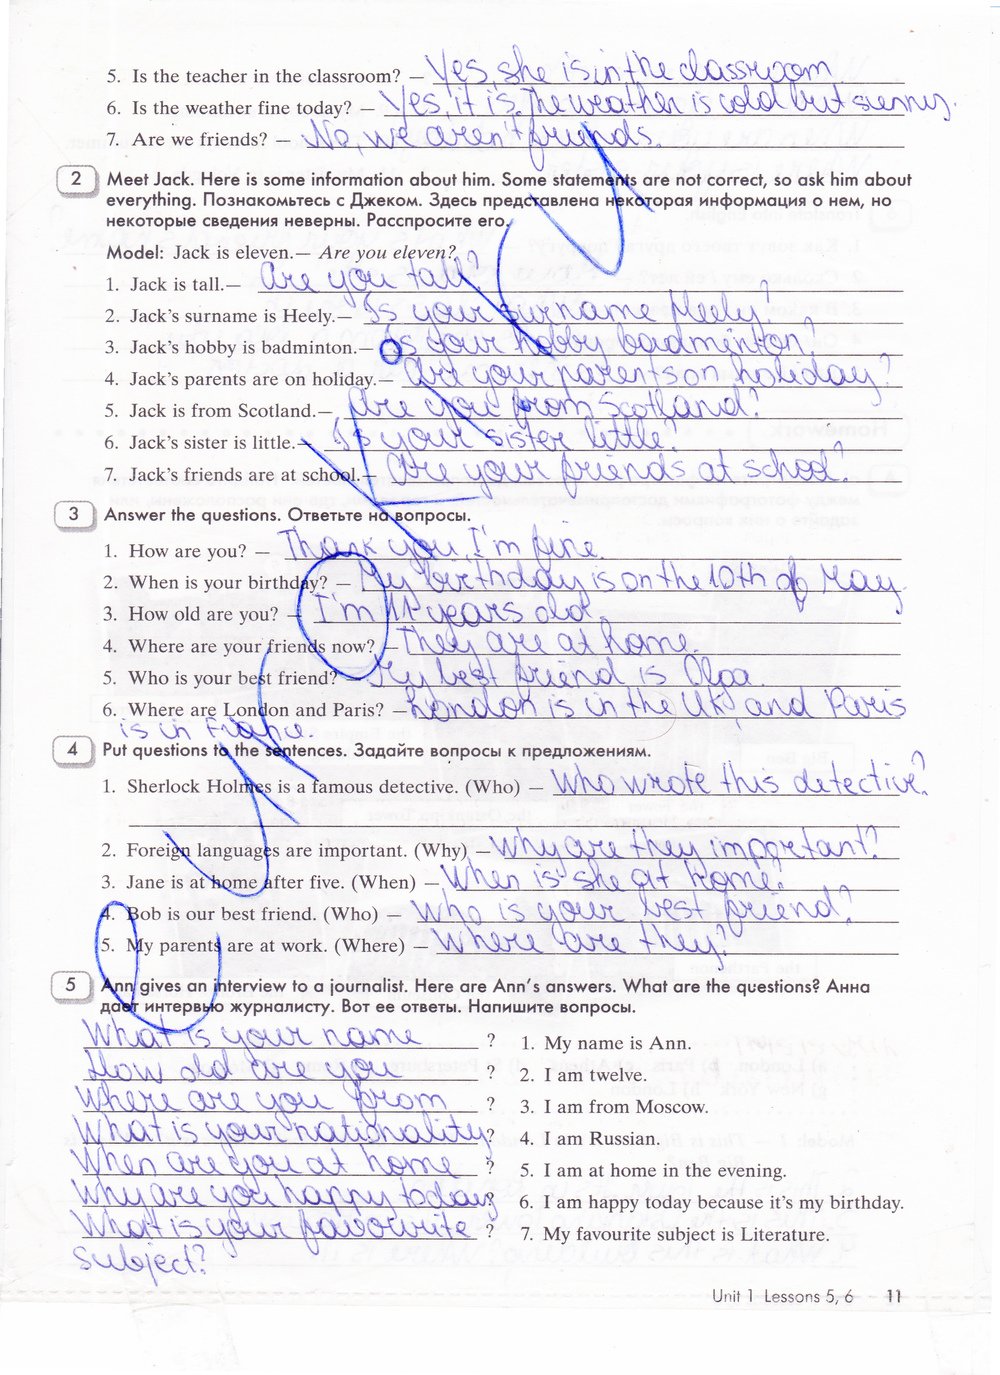 5. Is the teacher in the classroom? – Yes, she is in the classroom
6. Is the weather fine today? – Yes, it is. The weather is cold but sunny.
7. Are we friends? – No, we aren't friends.
2 Meet Jack. Here is some information about him. Some statements are not correct, so ask him about
everything. Познакомьтесь с Джеком. Здесь представлена некоторая информация о нем, но
некоторые сведения неверны. Расспросите его.
Model: Jack is eleven.— Are you eleven?
1. Jack is tall.— Are you tall?
2. Jack's surname is Heely.— Is your surname Heely?
3. Jack's hobby is badminton.— Is your hobby badminton?
4. Jack's parents are on holiday.— Are your parents on holiday?
5. Jack is from Scotland.— Are you from Scotland?
6. Jack's sister is little.— Is your sister little?
7. Jack's friends are at school.— Are your friends at school?
3 Answer the questions. Ответьте на вопросы.
1. How are you? – Thank you, I'm fine.
2. When is your birthday? – My birthday is on the 10th of May.
3. How old are you? – I'm 11 years old.
4. Where are your friends now? – They are at home.
5. Who is your best friend? – My best friend is Olga.
6. Where are London and Paris? – London is in the UK, and Paris
is in France.
4 Put questions to the sentences. Задайте вопросы к предложениям.
1. Sherlock Holmes is a famous detective. (Who) – Who wrote this detective?
2. Foreign languages are important. (Why) – Why are they important?
3. Jane is at home after five. (When) – When is she at home?
4. Bob is our best friend. (Who) – Who is your best friend?
5. My parents are at work. (Where) – Where are they?
5 Ann gives an interview to a journalist. Here are Ann's answers. What are the questions? Анна
дает интервью журналисту. Вот ее ответы. Напишите вопросы.
What is your name ? 1. My name is Ann.
How old are you ? 2. I am twelve.
Where are you from ? 3. I am from Moscow.
What is your nationality? 4. I am Russian.
When are you at home ? 5. I am at home in the evening.
Why are you happy today? 6. I am happy today because it's my birthday.
What is your favourite ? 7. My favourite subject is Literature.
subject?
Unit 1 Lessons 5, 6 11